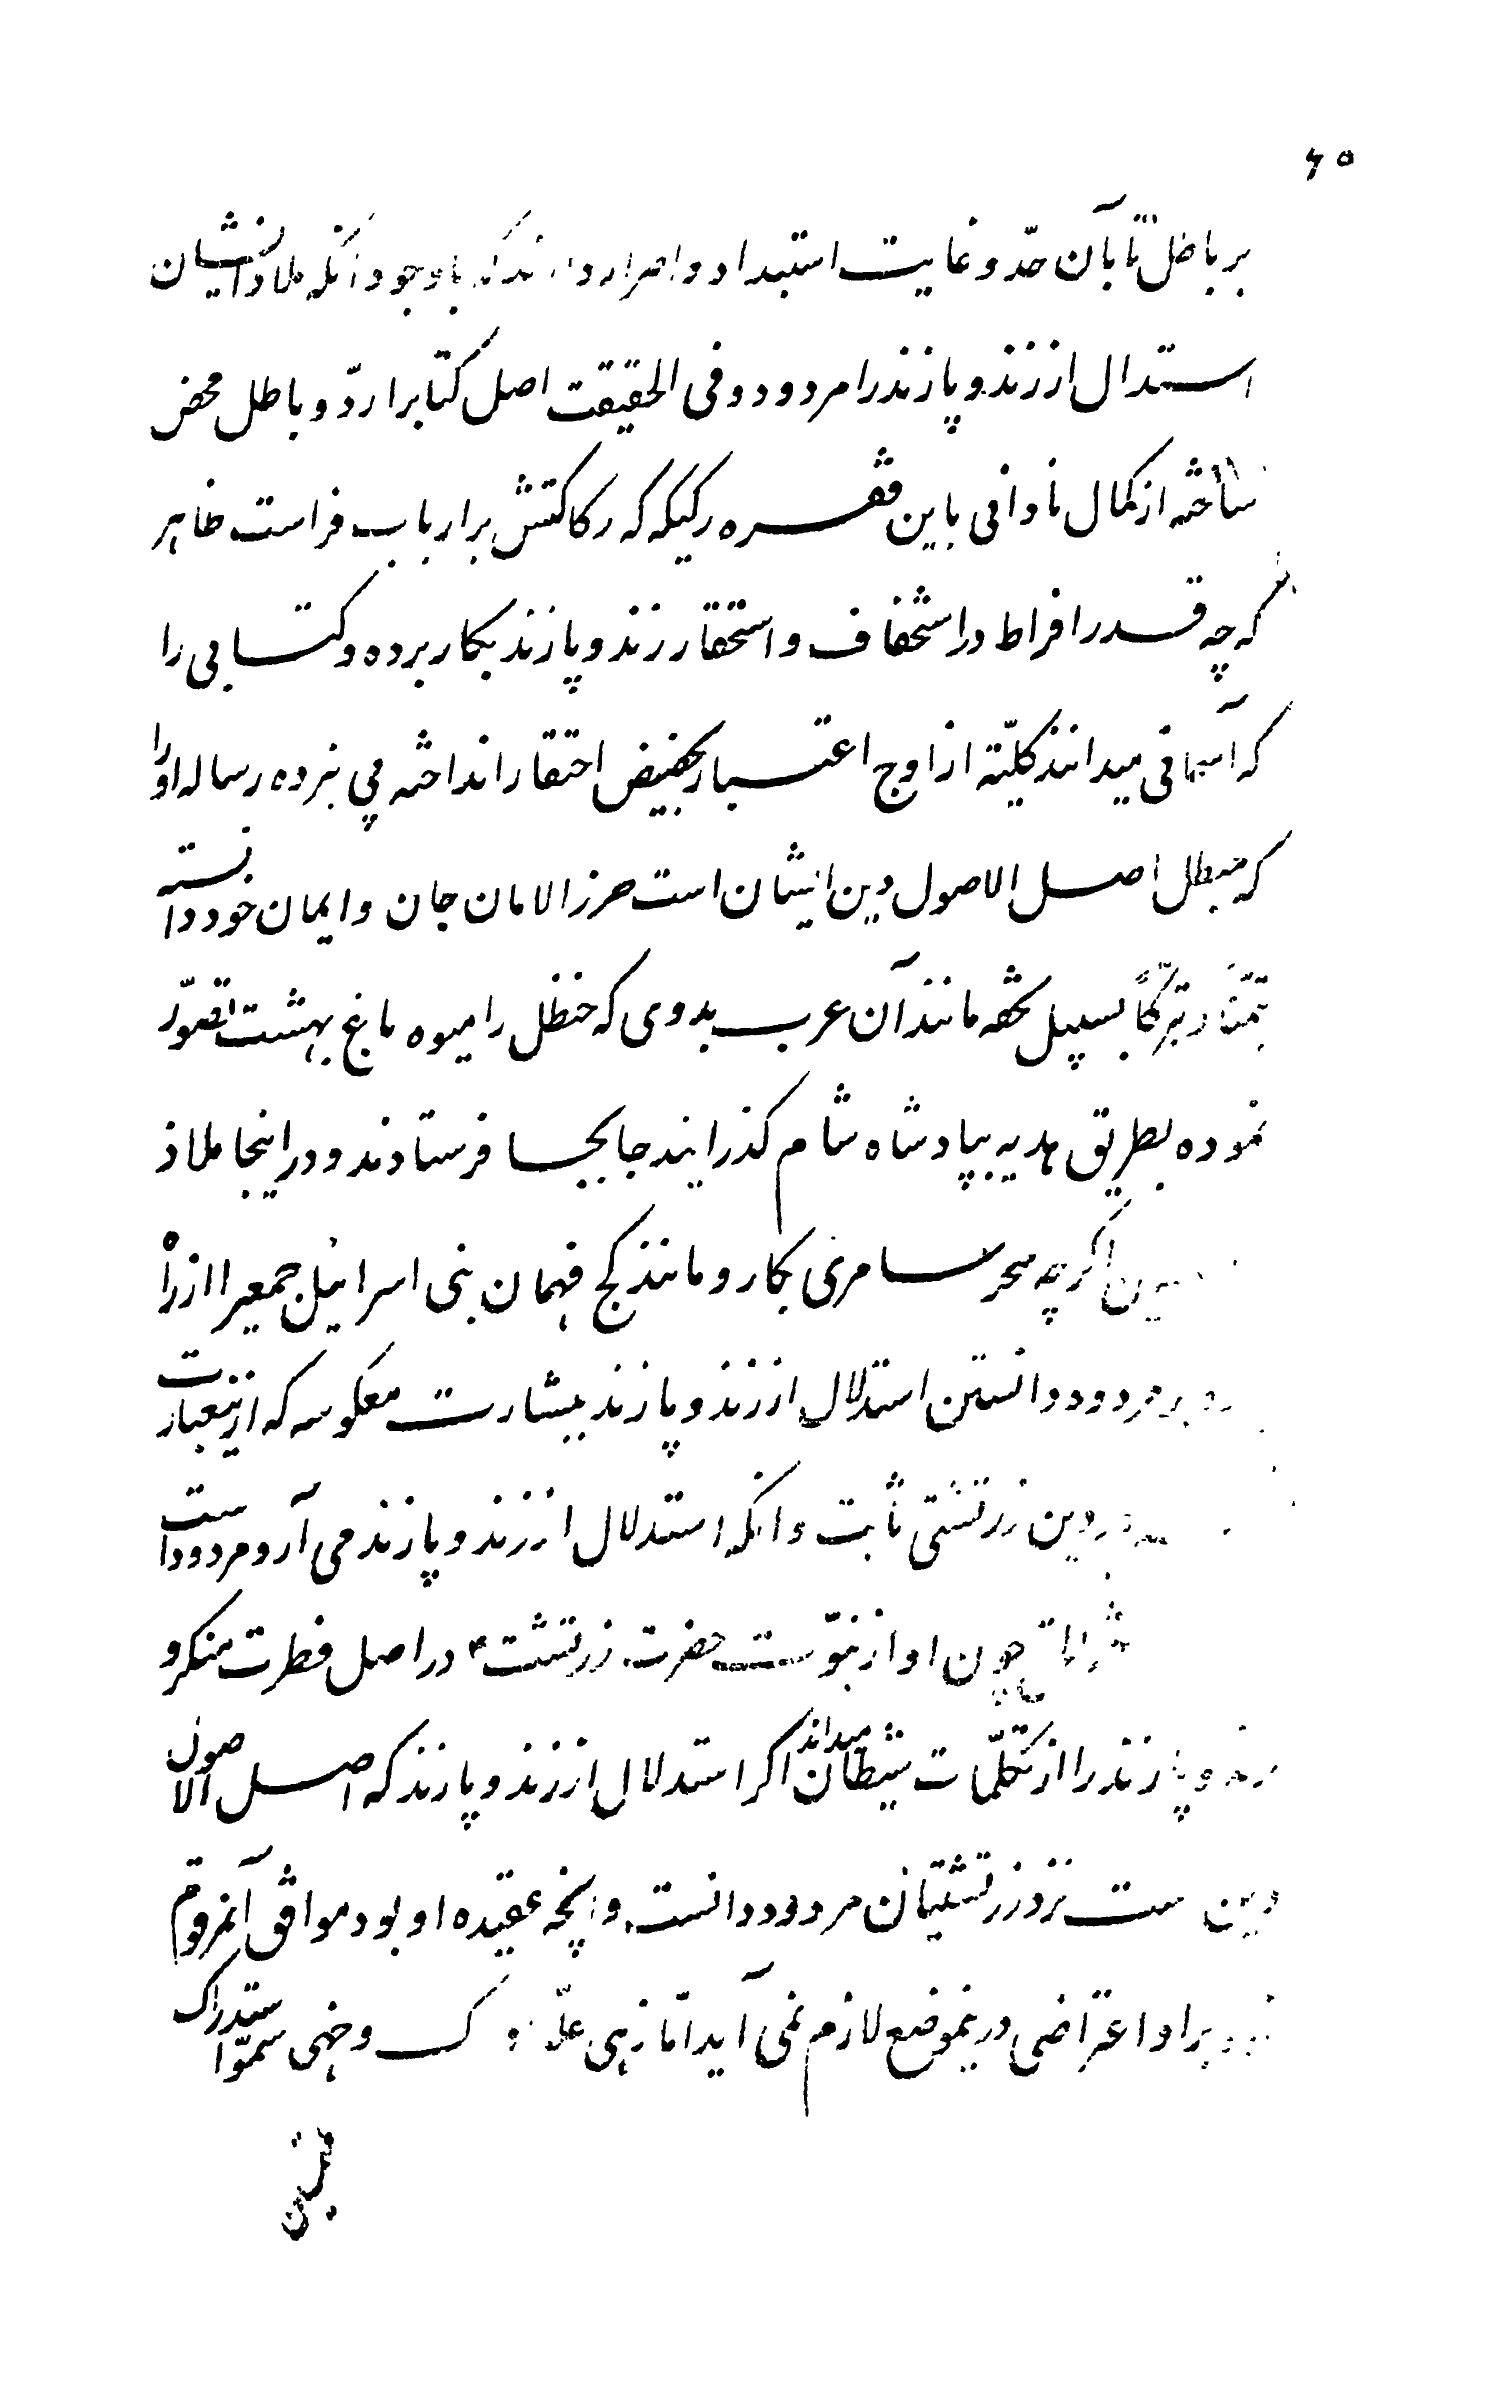 ۶۵
بر باطل تا بآن حدّ و غایت استبداد و اصرار دارند که با وجود آنکه ملاذ ایشان
استدال از زند و پازند را مردود و فی الحقیقت اصل کتابرا ردّ و باطل محض
ساخته از کمال نادانی باین فقره رکیکه که رکاکتش بر ارباب فراست ظاهر
که چه قدر افراط در استخفاف و استحقار زند و پازند بکار برده و کتابی را
که آسمانی میدانند کلیّة از اوج اعتبار بحضیض احتقار انداخته پی نبرده رساله او را
که مبطل اصل الاصول دین ایشان است حرز الامان جان و ایمان خود دانسته
تیمّناً و تبرّکاً بسبیل تحفه مانند آن عرب بدوی که حنظل را میوه باغ بهشت تصوّر
نموده بطریق هدیه بپادشاه شام گذرانید جابجا فرستادند و در اینجا ملاذ
اگرچه سحر سامری بکار و مانند کج فهمان بنی اسرائیل جمعیرا از راه
مردود دانستن استدلال از زند و پازند بشارت معکوسه که ازینعبارت
دین زرتشتی ثابت و انکه استدلال از زند و پازند می آرد مردود است
چون او از نبوّت حضرت زرتشت در اصل فطرت منکر و
زند و پازند را از تکلّمات شیطان میداند اگر استدلال از زند و پازند که اصل الاصول
دین ست نزد زرتشتیان مردود دانست و انچه عقیده او بود موافق آنمرقوم
بر او اعتراضی درینموضع لازم نمی آید امّا زهی وخهی سموّ استدراک